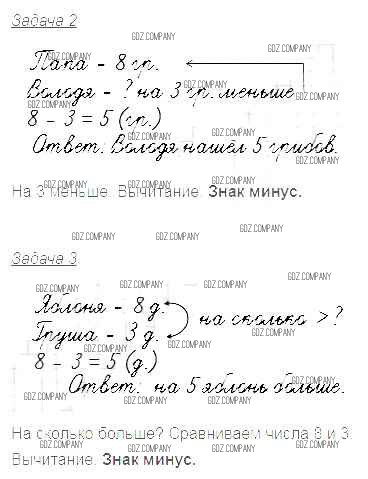 Задача 2
Папа - 8 гр.
Володя - ? на 3 гр. меньше
8 - 3 = 5 (гр.)
Ответ: Володя нашёл 5 грибов.
На 3 меньше. Вычитание. Знак минус.
Задача 3
Яблоня - 8 д.
на сколько > ?
Груша - 3 д.
8 - 3 = 5 (д.)
Ответ: на 5 яблонь больше.
На сколько больше? Сравниваем числа 8 и 3.
Вычитание. Знак минус.
GDZ.COMPANY